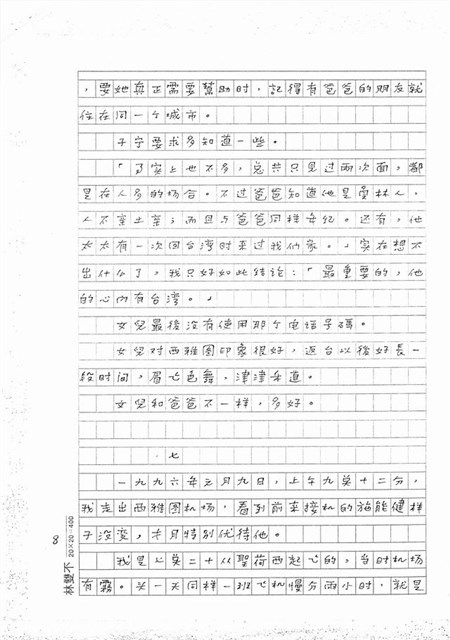 ，要她真正需要幫助时，記得有爸爸的朋友就
住在同一个城市。
子宁要求多知道一些。
「了实上也不多，总共只見过两次面，都
是在人多的场合。不过爸爸知道他是云林人，
人不亲土亲；而且与爸爸同样年纪。还有，他
太太有一次回台湾时来过我们家。」实在想不
出什么了，我只好如此结论：「最重要的，他
的心内有台湾。」
女兒最後沒有使用那个电话号碼。
女兒对西雅圖印象很好，返台以後好長一
段时间，眉飞色舞，津津乐道。
女兒和爸爸不一样，多好。
七
一九九六年三月九日，上午九点十二分，
我走出西雅圖机场，看到前来接机的施能健样
子沒变，才月特別优待他。
我是七点二十从聖荷西起飞的，当时机场
有霧。头一天同样一班飞机慢分两小时，就是
8
林雙不 20×20=400